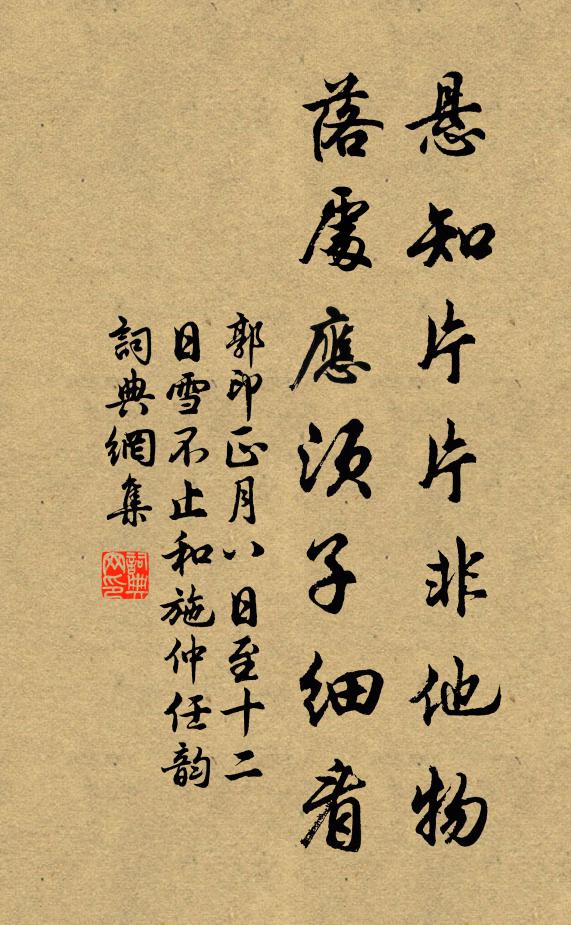 悬知片片非他物
落處應須子細看
郭印正月八日至十二
日雪不止和施仲任韵
詞典網集
詞典
网印